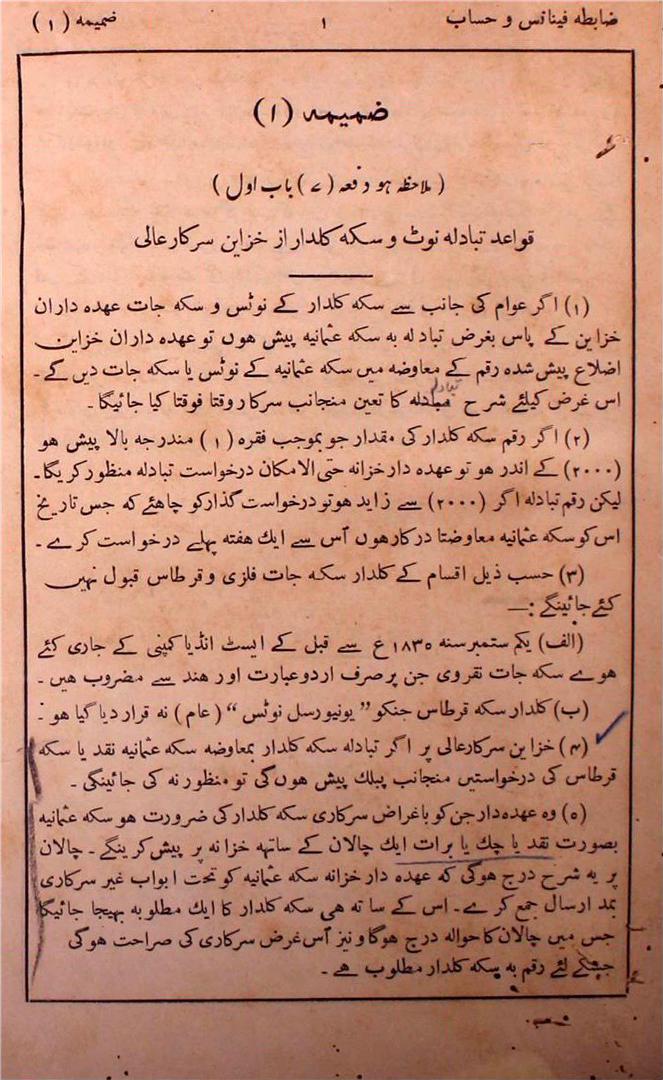 ضابطه فینانس و حساب ۱ ضمیمه (۱)
ضمیمه (۱)
(ملاحظه هو دفعه (۷) باب اول)
قواعد تبادله نوٹ و سکه کلدار از خزاین سرکارعالی
(۱) اگر عوام کی جانب سے سکه کلدار کے نوٹس و سکه جات عهده داران
خزاین کے پاس بغرض تبادله به سکه عثمانیه پیش هوں تو عهده داران خزاین
اضلاع پیش شده رقم کے معاوضه میں سکه عثمانیه کے نوٹس یا سکه جات دیں گے ۔
تبادله
اس غرض کیلئے شرح مبادله کا تعین منجانب سرکار وقتا فوقتا کیا جائیگا ۔
(۲) اگر رقم سکه کلدار کی مقدار جو بموجب فقره (۱) مندرجه بالا پیش هو
(۲۰۰۰) کے اندر هو تو عهده دار خزانه حتی الامکان درخواست تبادله منظور کریگا ۔
لیکن رقم تبادله اگر (۲۰۰۰) سے زاید هو تو درخواست گذار کو چاهئے که جس تاریخ
اس کو سکه عثمانیه معاوضتا درکار هوں آس سے ایك هفته پہلے درخواست کرے ۔
(۳) حسب ذیل اقسام کے کلدار سکه جات فلزی و قرطاس قبول نہیں
کئے جائینگے :—
(الف) یکم ستمبر سنه ۱۸۳۵ ع سے قبل کے ایسٹ انڈیا کمپنی کے جاری کئے
هوے سکه جات نقروی جن پر صرف اردو عبارت اور هند سے مضروب هیں ۔
(ب) کلدار سکه قرطاس جنکو ”یونیورسل نوٹس“ (عام) نه قرار دیا گیا هو ۔
(۴) خزاین سرکارعالی پر اگر تبادله سکه کلدار بمعاوضه سکه عثمانیه نقد یا سکه
قرطاس کی درخواستیں منجانب پبلك پیش هوں گی تو منظور نه کی جائینگی ۔
(۵) وه عهده دار جن کو باغراض سرکاری سکه کلدار کی ضرورت هو سکه عثمانیه
بصورت نقد یا چك یا برات ایك چالان کے ساتهه خزانه پر پیش کرینگے ۔ چالان
پر یه شرح درج هوگی که عهده دار خزانه سکه عثمانیه کو تحت ابواب غیر سرکاری
بمد ارسال جمع کرے ۔ اس کے ساته هی سکه کلدار کا ایك مطلوبه بهیجا جائیگا
جس میں چالان کا حواله درج هوگا و نیز آس غرض سرکاری کی صراحت هوگی
جسکے لئے رقم به سکه کلدار مطلوب هے ۔